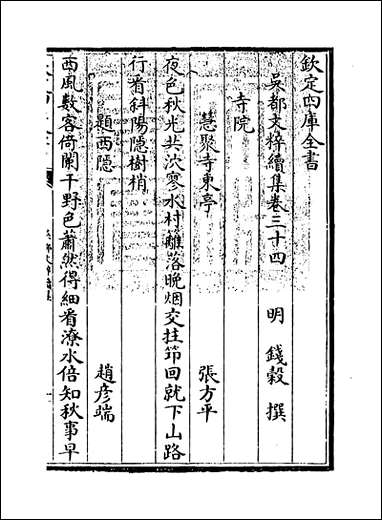 欽定四庫全書
吳都文粹續集卷三十四
明 錢穀 撰
寺院
慧聚寺東亭 張方平
夜色秋光共泬寥水村籬落晚烟交拄笻回就下山路
行看斜陽隱樹梢
題西隱 趙彦端
西風數客倚闌干野色蕭然得細看潦水倍知秋事早